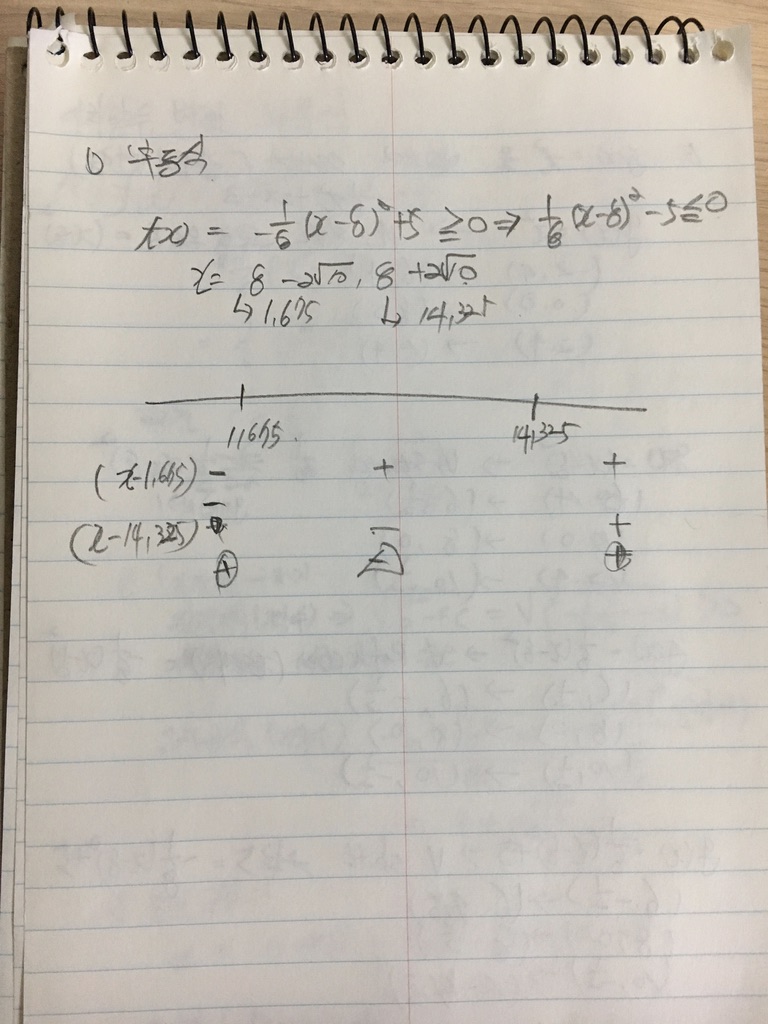 ① 부등식
f(x) = -1/8 (x-8)² + 5 ≧ 0 ⇒ 1/8 (x-8)² - 5 ≦ 0
x = 8 - 2√10, 8 + 2√10
↳ 1,675 ↳ 14,325
1,675 14,325
(x-1,675) - + +
(x-14,325) - - +
+ - +